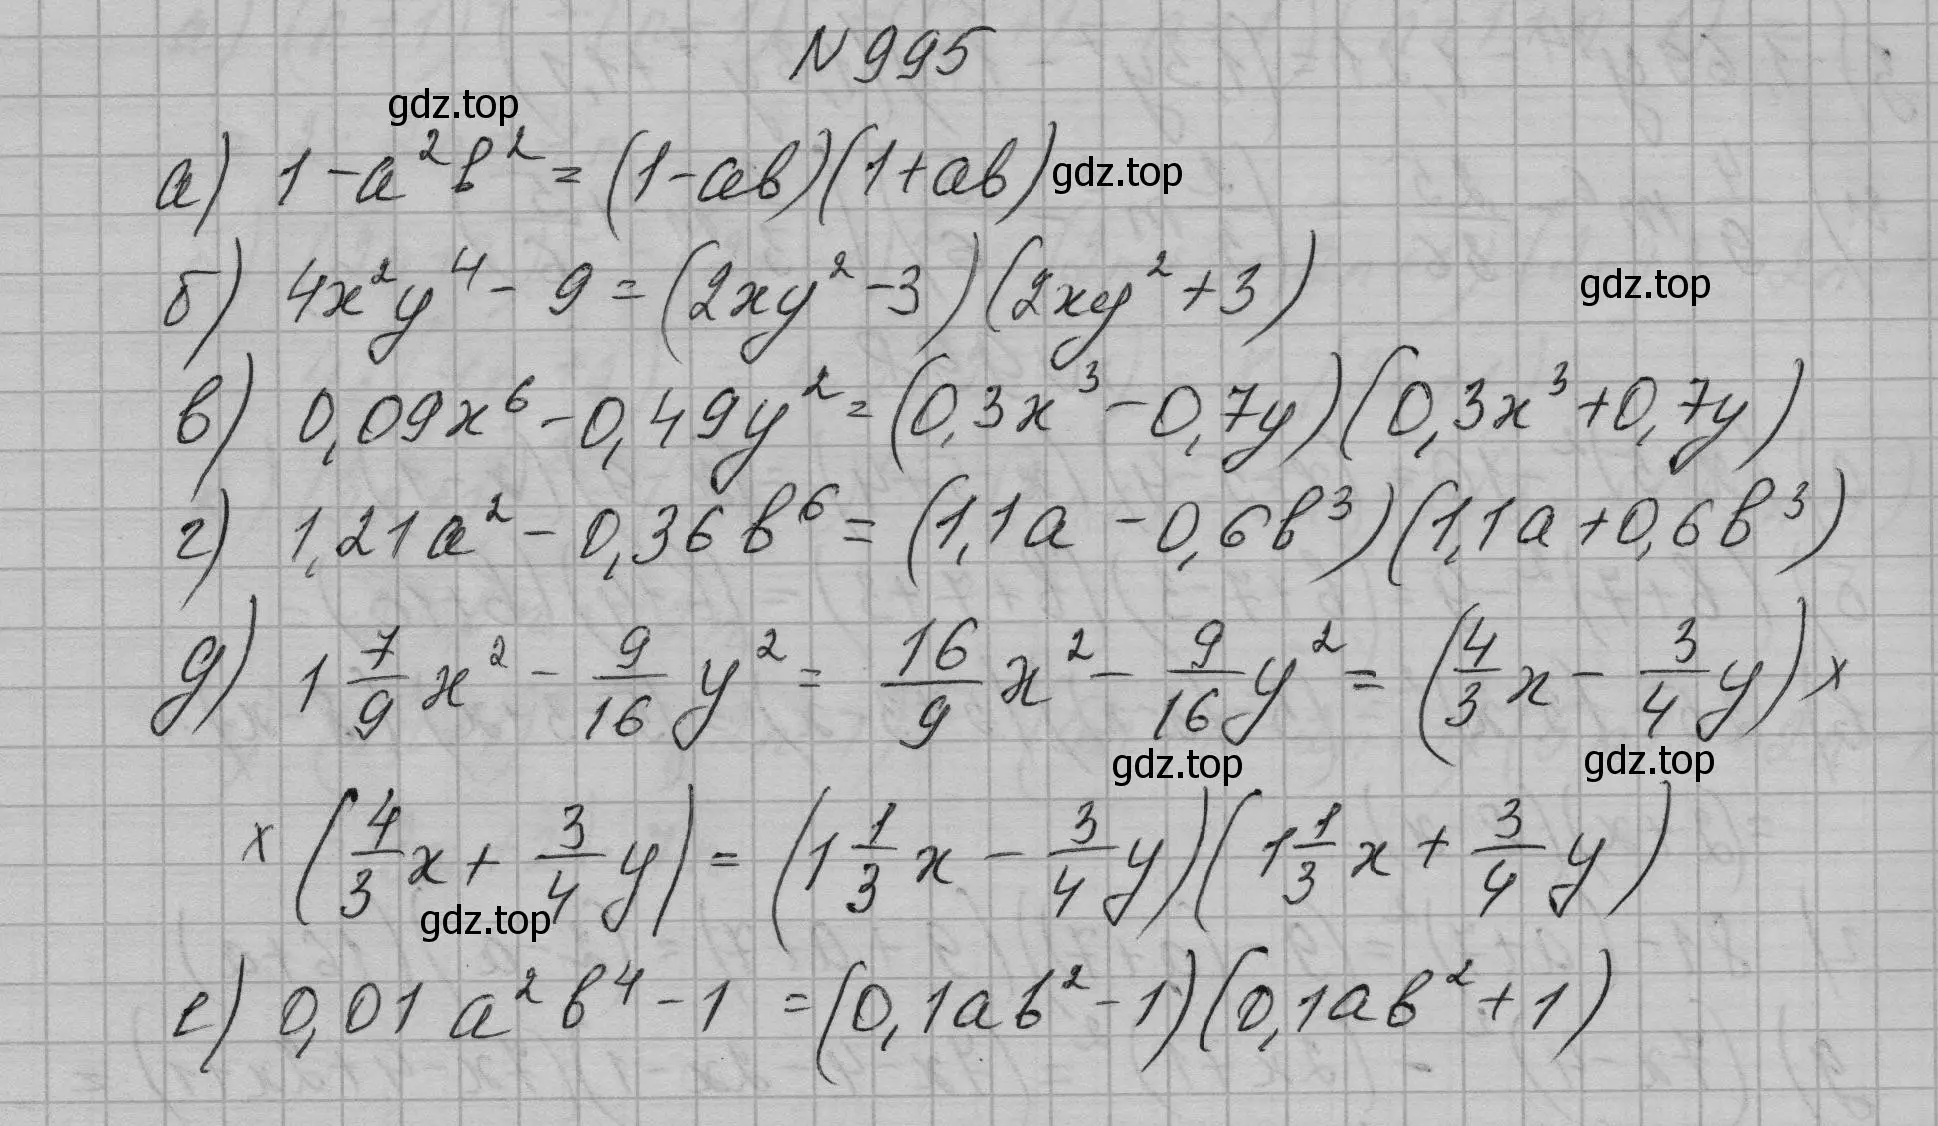 N 995
gdz.top
а) 1 - a²b² = (1 - ab)(1 + ab) gdz.top
б) 4x²y⁴ - 9 = (2xy² - 3)(2xy² + 3) gdz.top
в) 0,09x⁶ - 0,49y² = (0,3x³ - 0,7y)(0,3x³ + 0,7y)
г) 1,21a² - 0,36b⁶ = (1,1a - 0,6b³)(1,1a + 0,6b³)
д) 1 7/9 x² - 9/16 y² = 16/9 x² - 9/16 y² = (4/3 x - 3/4 y) ×
gdz.top gdz.top
× (4/3 x + 3/4 y) = (1 1/3 x - 3/4 y)(1 1/3 x + 3/4 y)
gdz.top
е) 0,01 a²b⁴ - 1 = (0,1ab² - 1)(0,1ab² + 1)